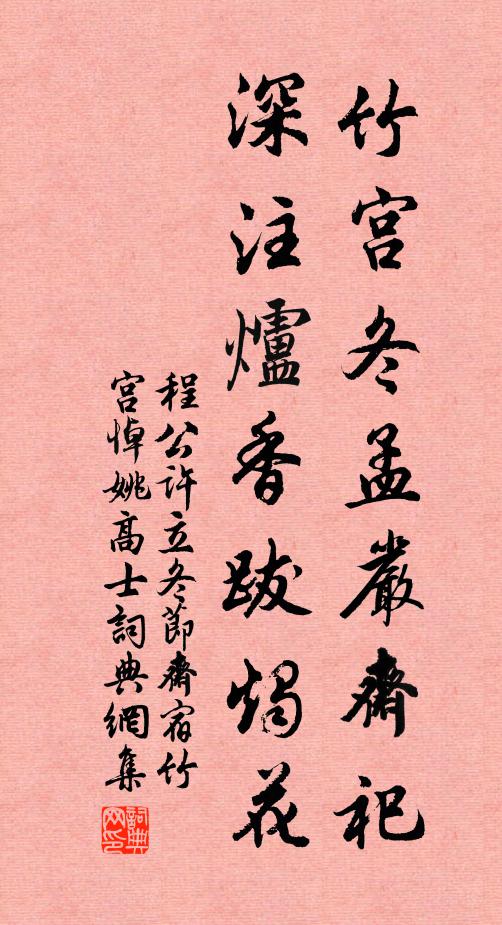 竹宮冬孟嚴齋祀
深注爐香跋燭花
程公許立冬節齋宿竹
宮悼姚高士詞典網集
詞典网印